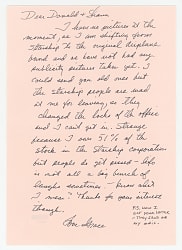 Dear Donald & Shawn
I have no pictures at the
moment, as I am shifting from
Starship to the original Airplane
band and we have not had any
publicity pictures taken yet. I
could send you old ones but
the Starship people are mad
at me for leaving, so they
changed the locks of the office
and I can't get in. Strange
because I own 51% of the
stock in the Starship corporation
but people do get pissed - life
is not all a big bunch of
laughs sometimes - know what
I mean? Thanks for your interest
though.
Love Grace
P.S. Wow I
got your letter
- They stuck on
my